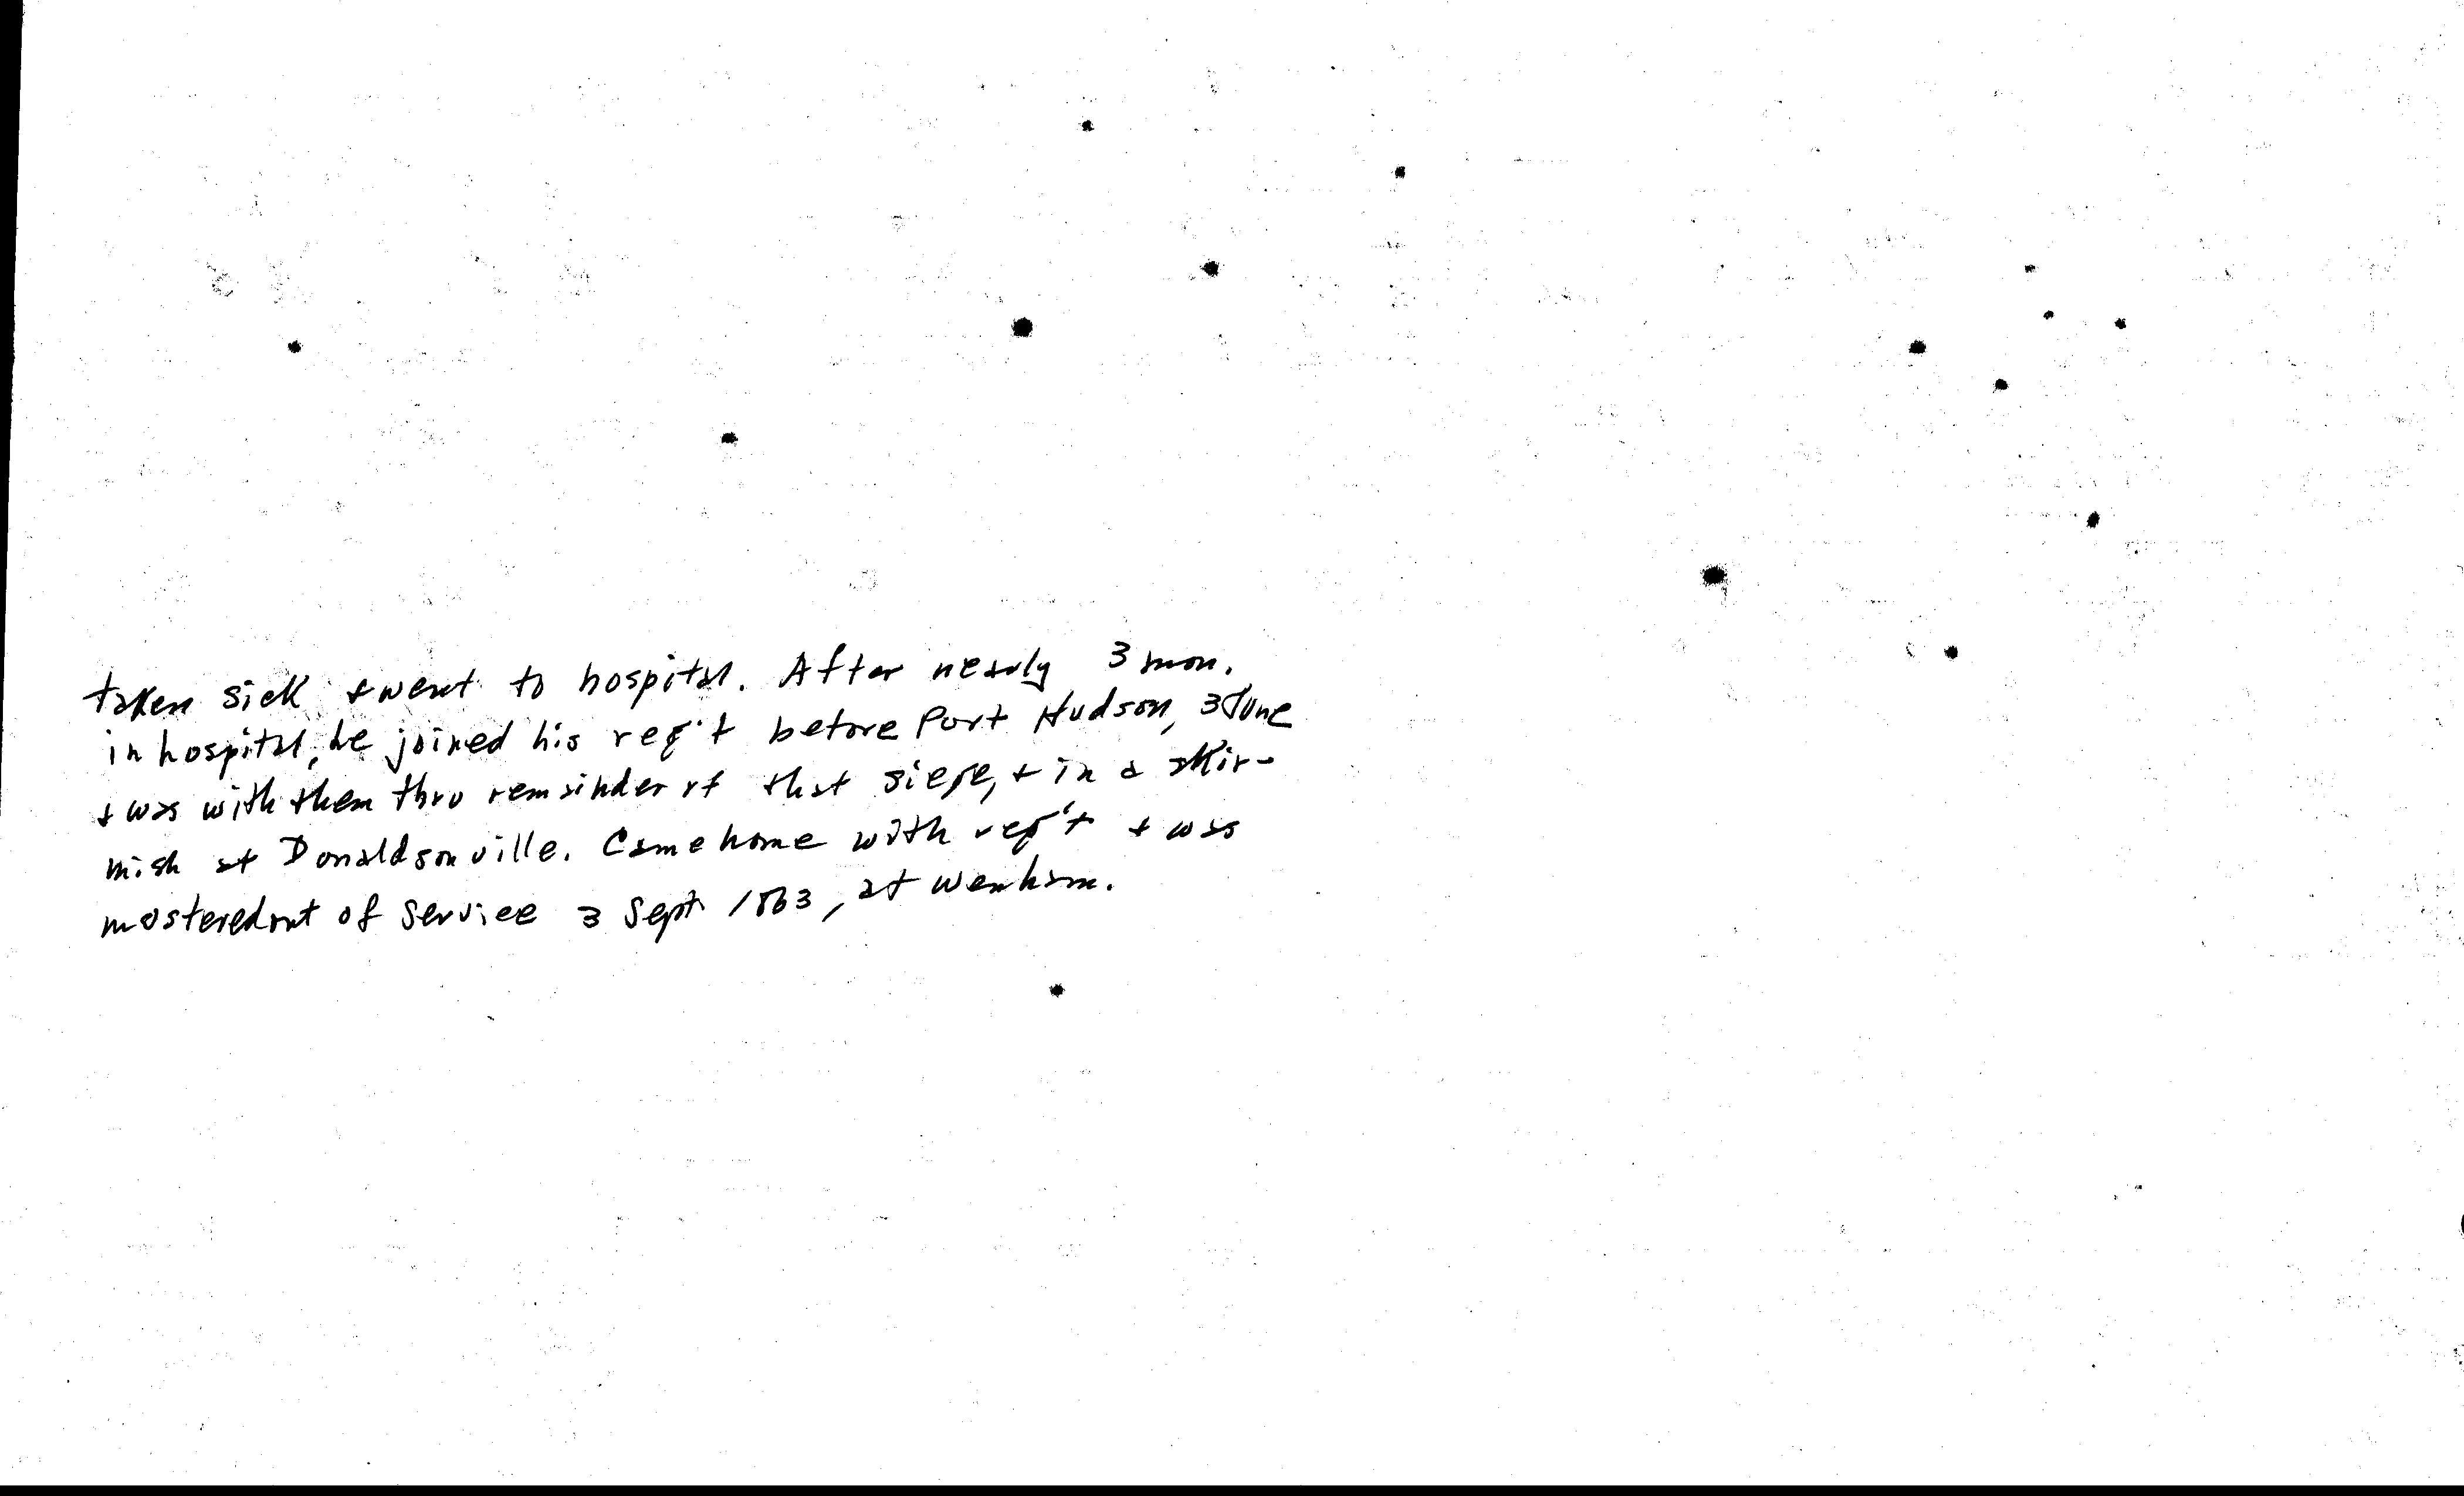 taken sick + went to hospital. After nearly 3 mon.
in hospital, he joined his reg't before Port Hudson, 3 June
+ was with them thru remainder of that siege, + in a skir-
mish at Donaldsonville. Came home with reg't + was
mustered out of service 3 Sept 1863, at Wenham.